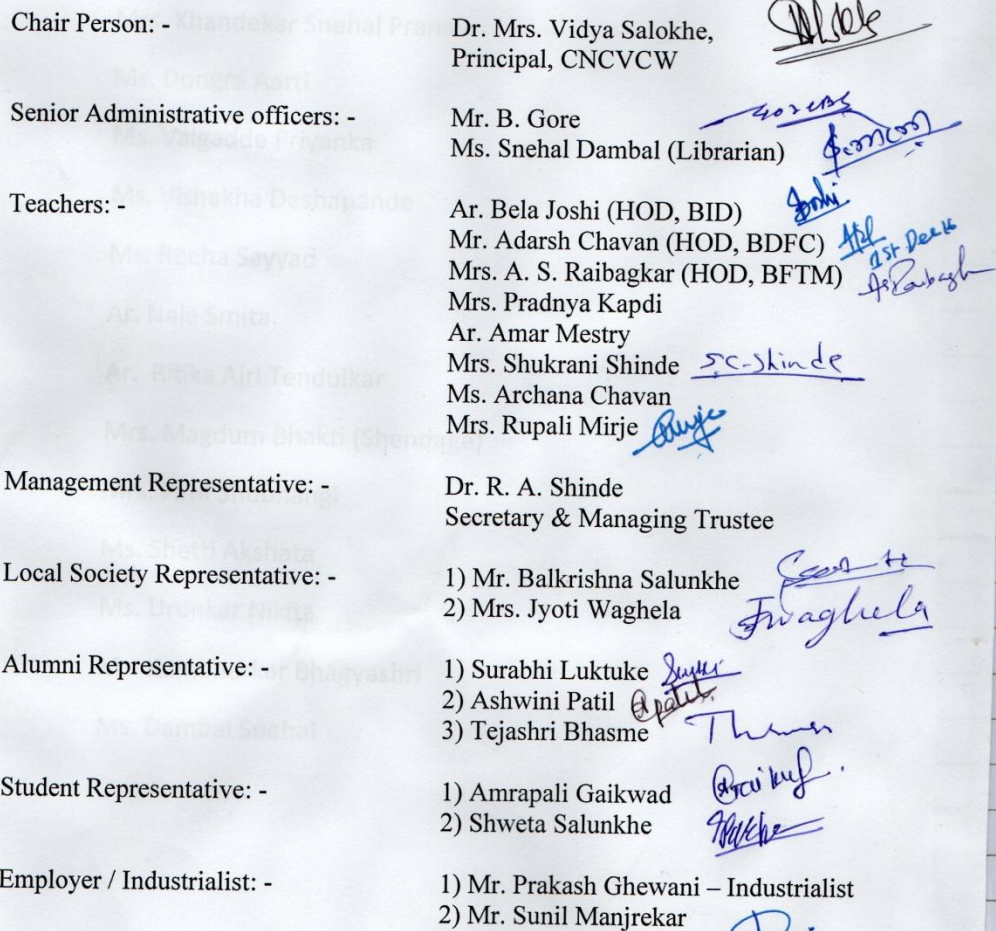 Chair Person: - Dr. Mrs. Vidya Salokhe,
Principal, CNCVCW
Senior Administrative officers: - Mr. B. Gore
Ms. Snehal Dambal (Librarian)
Teachers: - Ar. Bela Joshi (HOD, BID) Joshi
Mr. Adarsh Chavan (HOD, BDFC)
Mrs. A. S. Raibagkar (HOD, BFTM)
Mrs. Pradnya Kapdi
Ar. Amar Mestry
Mrs. Shukrani Shinde S.C.Shinde
Ms. Archana Chavan
Mrs. Rupali Mirje
Management Representative: - Dr. R. A. Shinde
Secretary & Managing Trustee
Local Society Representative: - 1) Mr. Balkrishna Salunkhe
2) Mrs. Jyoti Waghela Jwaghela
Alumni Representative: - 1) Surabhi Luktuke
2) Ashwini Patil Apatil
3) Tejashri Bhasme
Student Representative: - 1) Amrapali Gaikwad
2) Shweta Salunkhe
Employer / Industrialist: - 1) Mr. Prakash Ghewani – Industrialist
2) Mr. Sunil Manjrekar
Khandekar Snehal
Ms. Dongre Aarti
Ms. Valgadde Priyanka
Ms. Vishakha Deshapande
Sayyad
Ar. Nala Smita
Ar. Ritika Tendulkar
Mrs. Magdum Bhakti (Shendage)
Ms. Shetti Akshata
Ms. Urunkar Nikita
Bhagyashri
Ms. Dambal Snehal